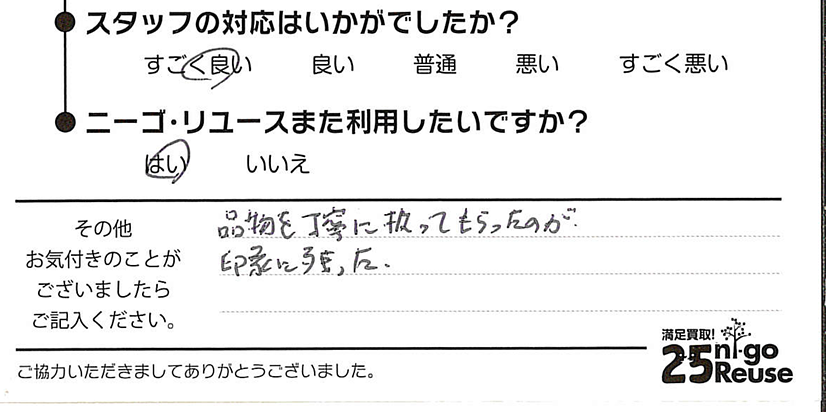 ● スタッフの対応はいかがでしたか？
すごく良い 良い 普通 悪い すごく悪い
● ニーゴ・リユースまた利用したいですか？
はい いいえ
その他
お気付きのことが
ございましたら
ご記入ください。
品物を丁寧に扱ってもらったのが
印象に残った.
ご協力いただきましてありがとうございました。
満足買取!
25 ni-go
Reuse